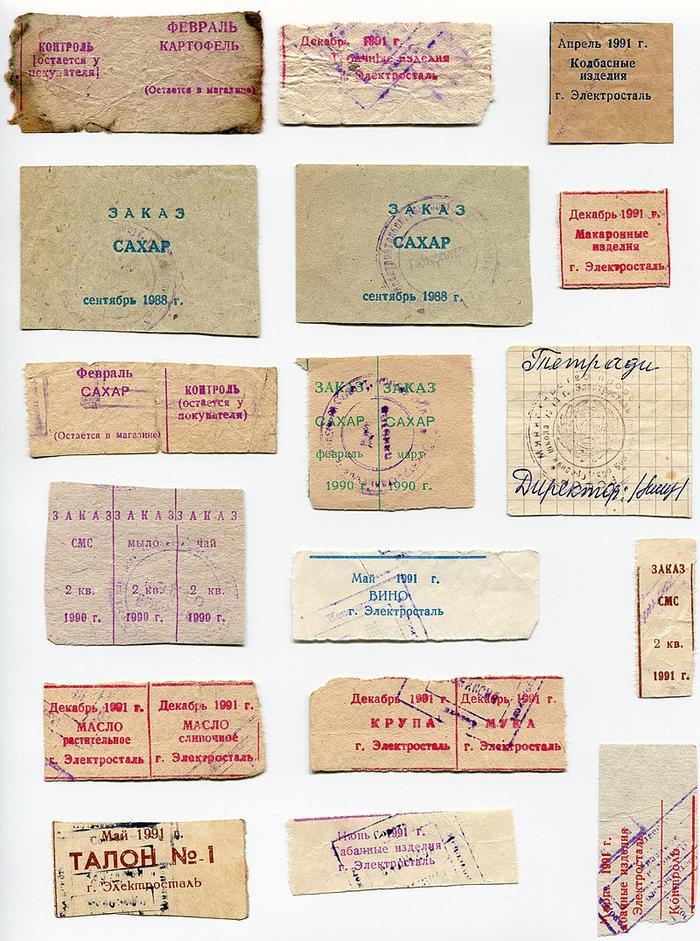 ФЕВРАЛЬ
КОНТРОЛЬ КАРТОФЕЛЬ
[остается у
покупателя]
(Остается в магазине)
Декабрь 1991 г.
Табачные изделия
г. Электросталь
Апрель 1991 г.
Колбасные
изделия
г. Электросталь
ЗАКАЗ
САХАР
сентябрь 1988 г.
ЗАКАЗ
САХАР
сентябрь 1988 г.
Декабрь 1991 г.
Макаронные
изделия
г. Электросталь
Февраль
САХАР
(Остается в магазине)
КОНТРОЛЬ
(остается у
покупателя)
ЗАКАЗ ЗАКАЗ
САХАР САХАР
февраль март
1990 г. 1990 г.
Тетради
Директор:
ЗАКАЗ ЗАКАЗ ЗАКАЗ
СМС мыло чай
2 кв. 2 кв. 2 кв.
1990 г. 1990 г. 1990 г.
Май 1991 г.
ВИНО
г. Электросталь
ЗАКАЗ
СМС
2 кв.
1991 г.
Декабрь 1991 г. Декабрь 1991 г.
МАСЛО МАСЛО
растительное сливочное
г. Электросталь г. Электросталь
Декабрь 1991 г. Декабрь 1991 г.
КРУПА МУКА
г. Электросталь г. Электросталь
Май 1991 г.
ТАЛОН № 1
г. Электросталь
Июнь 1991 г.
Табачные изделия
г. Электросталь
1991 г.
изделия
Электросталь
Контроль